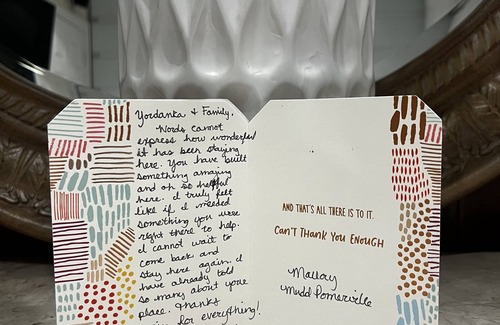 Yordanka & Family,
Words cannot
express how wonderful
it has been staying
here. You have built
something amazing
and oh so helpful
here. I truly felt
like if I needed
something you were
right there to help.
I cannot wait to
come back and
stay here again. I
have already told
so many about your
place. Thanks
for everything!
AND THAT'S ALL THERE IS TO IT.
CAN'T THANK YOU ENOUGH
Mallory